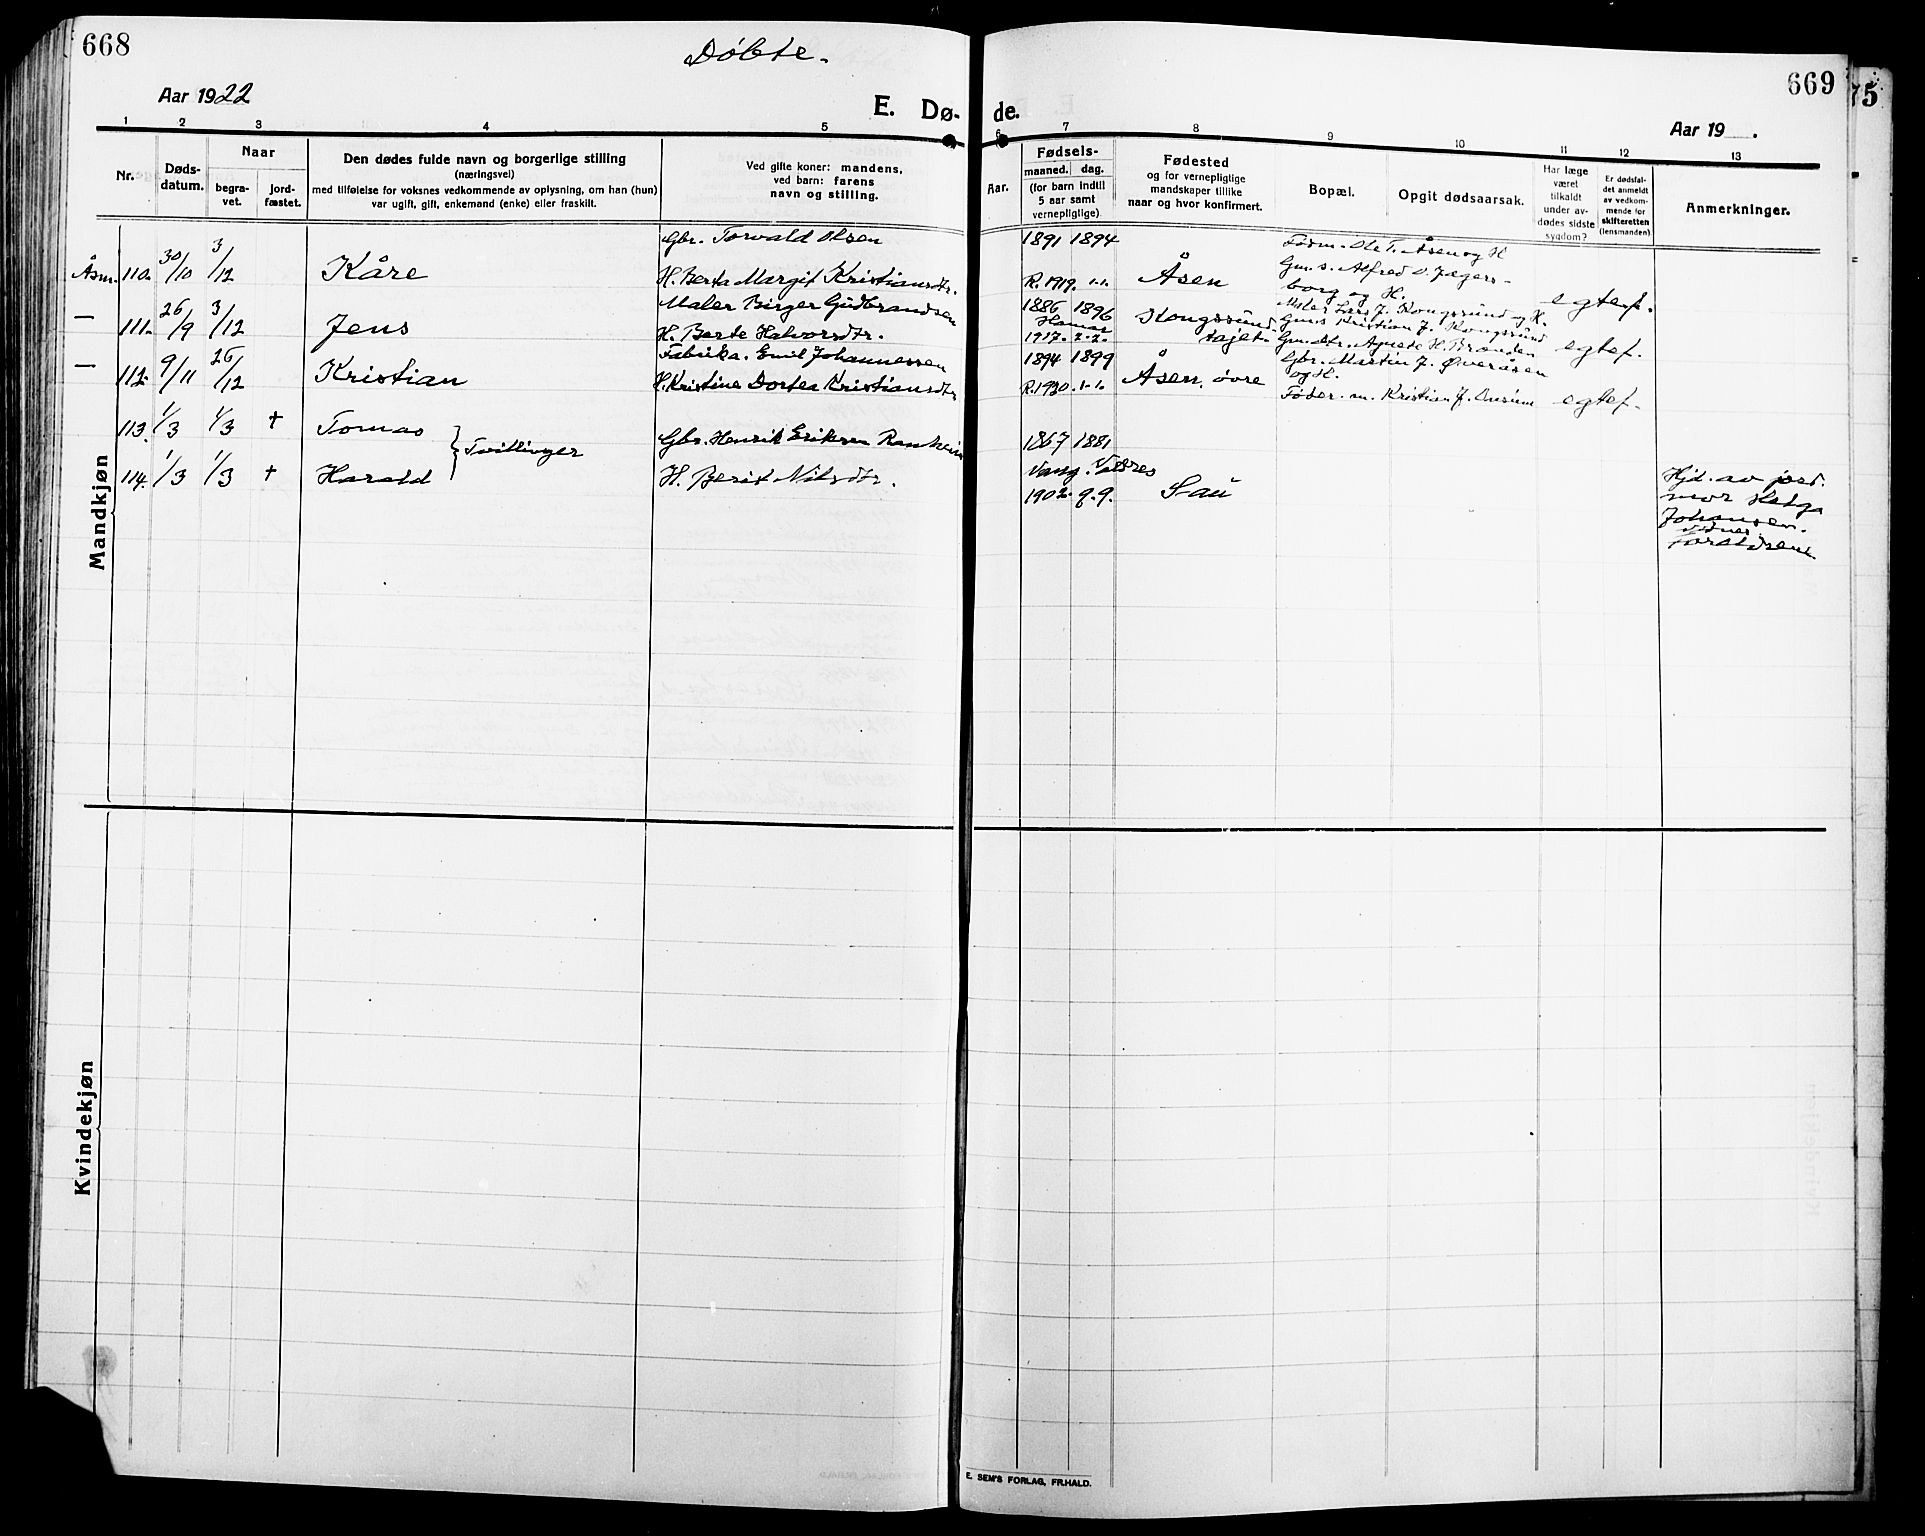 668
Døbte.
Aar 1922
E. Dø-
1 2 3 4 5
Nr.
Døds-
datum.
Naar
begra-
vet.
jord-
fæstet.
Den dødes fulde navn og borgerlige stilling
(næringsvei)
med tilføielse for voksnes vedkommende av oplysning, om han (hun)
var ugift, gift, enkemand (enke) eller fraskilt.
Ved gifte koner: mandens,
ved barn: farens
navn og stilling.
Mandkjøn
Gbr. Torvald Olsen
Åsm. 110. 30/10 3/12 Kåre H. Berta Margit Kristiansdtr.
Maler Birger Gudbrandsen
— 111. 26/9 3/12 Jens H. Berte Halvorsdtr.
Fabrika. Emil Johannessen
— 112. 9/11 26/12 Kristian H. Kristine Dortea Kristiansdtr
113. 1/3 1/3 + Tomas Gbr. Henrik Eriksen
Tvillinger
114. 1/3 1/3 + Harald H. Berit Nilsdtr.
Kvindekjøn
669
75
de.
Aar 19 .
6 7 8 9 10 11 12 13
Aar.
Fødsels-
maaned. dag.
(for barn indtil
5 aar samt
vernepligtige)
Fødested
og for vernepligtige
mandskaper tillike
naar og hvor konfirmert.
Bopæl.
Opgit dødsaarsak.
Har læge
været
tilkaldt
under av-
dødes sidste
sygdom?
Er dødsfal-
det anmeldt
av vedkom-
mende for
skifteretten
(lensmanden).
Anmerkninger.
1891 1894 Ole T. Åsen og H
Gm. s. Alfred O. Jagers-
R. 1919. 1.1. Åsen borg og H. egtef.
1886 1896 Maler Lars J. Kongssund og H.
Hamar Kongssund- Gms Kristian J. Kongssund
1917. 2.2. tajet. Gm. dtr. Agnete H. Brenden egtef.
1894 1899 Gbr. Martin J. Øveråsen
R. 1920. 1.1. Åsen, øvre og H.
Kristian J. egtef.
1867 1881
Vang. Valdres
1902. 9.9. Sau
Hjd. av jord.
mor Helga
Johansen.
vidner
forældrene
E. SEM'S FORLAG, FR.HALD.